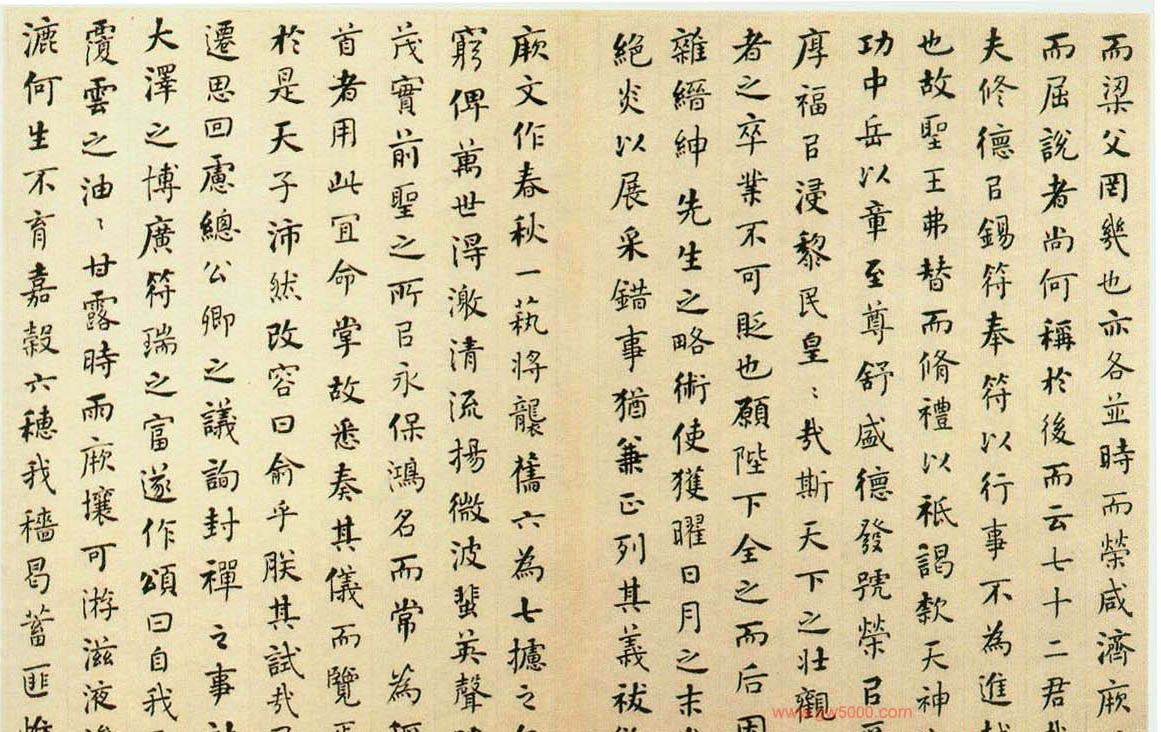 而梁父罔幾也亦各並時而榮咸濟厥
而屈說者尚何稱於後而云七十二君
夫修德㠯錫符奉符以行事不為進
也故聖王弗替而脩禮以祇謁款天神
功中岳以章至尊舒盛德發號榮㠯
厚福㠯浸黎民皇〻哉斯天下之壯觀
者之卒業不可貶也願陛下全之而后
雜縉紳先生之略術使獲曜日月之末
絕炎以展采錯事猶兼正列其義祓
厥文作春秋一蓺將襲舊六為七攄之
窮俾萬世得激清流揚微波蜚英聲
茂實前聖之所㠯永保鴻名而常為
首者用此宜命掌故悉奏其儀而覽
於是天子沛然改容曰俞乎朕其試哉
遷思回慮總公卿之議詢封禪之事
大澤之博廣符瑞之富遂作頌曰自我
覆雲之油〻甘露時雨厥壤可游滋液
漉何生不育嘉穀六穗我穡曷蓄匪
www.gw5000.com